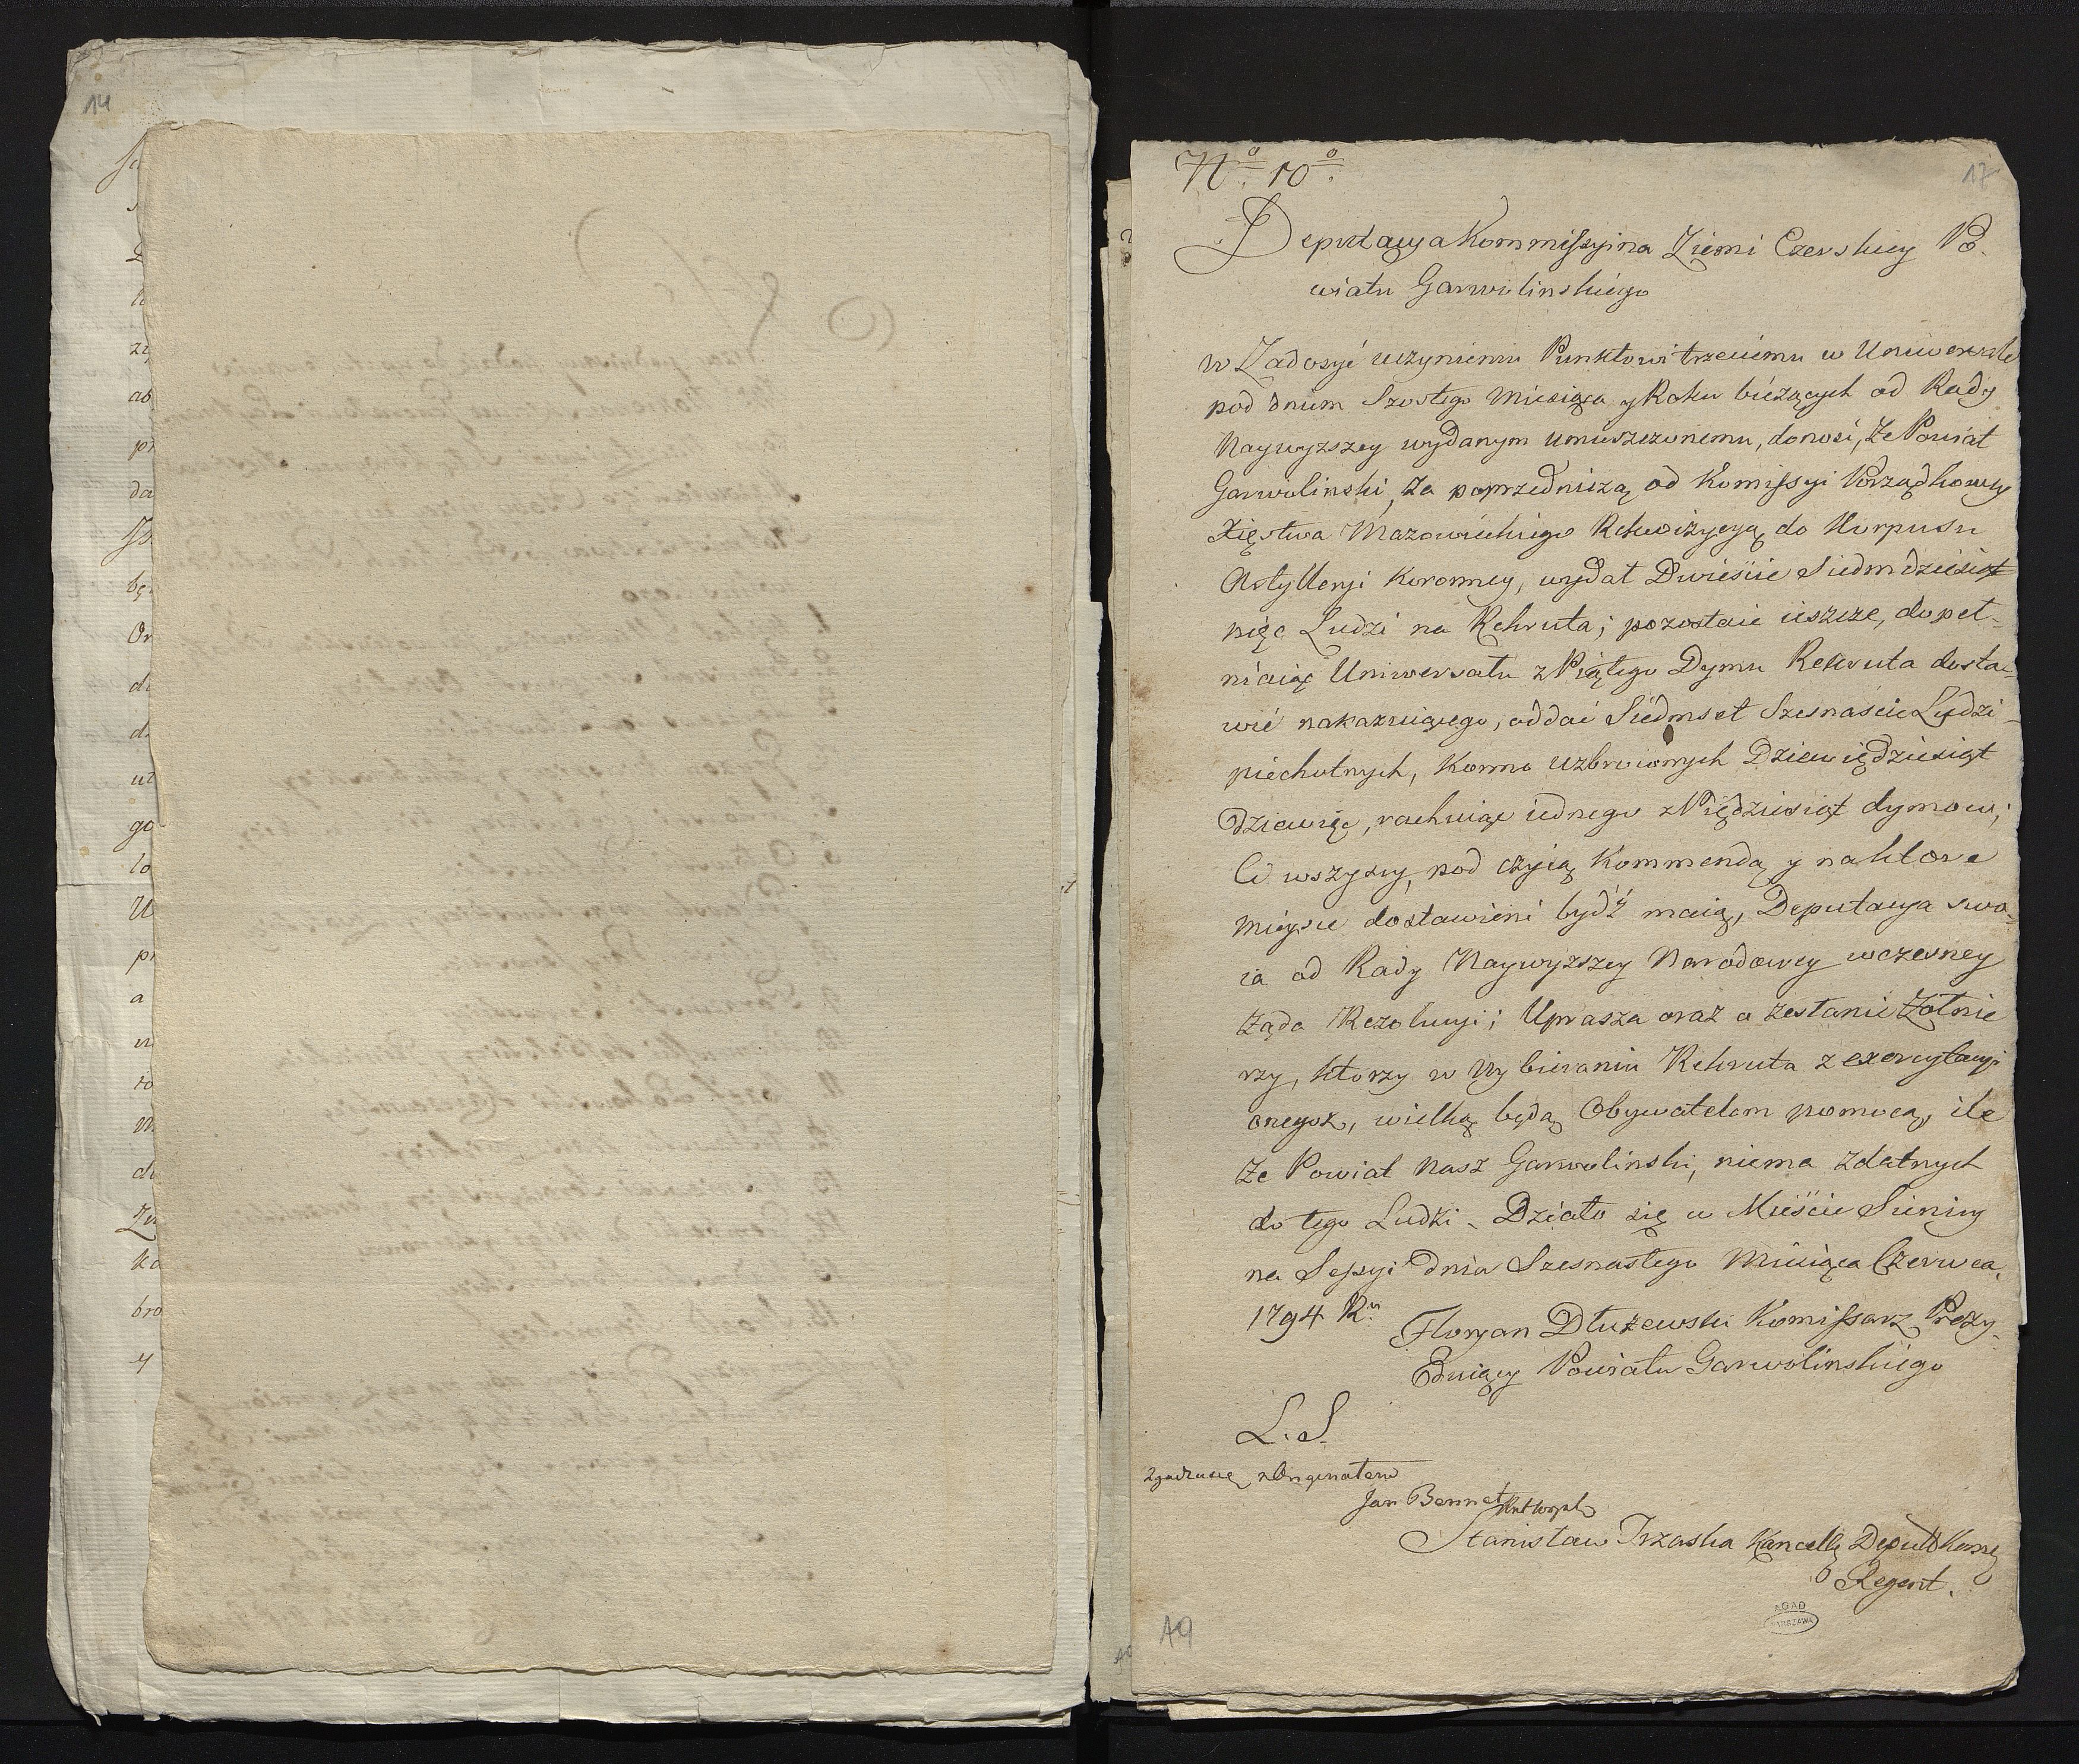 14
17
No. 10o.
Deputacya Kommissyina Ziemi Czerskiey Po
wiatu Garwolinskiego
w Zadosyć uczynieniu Punktowi trzeciemu w Uniwersale
pod dniem Szostego Miesiąca y Roku bieżących od Rady
Naywyzszey wydanym umieszczonemu, donosi, że Powiat
Garwolinski, za poprzedniczą od Komissyi Porządkowey
Xięstwa Mazowieckiego Rekwizycyą do Korpusu
Artylleryi Koronney, wydał Dwieście Siedmdziesiąt
pięć Ludzi na Rekruta; pozostaie ieszcze, dopeł-
niaiąc Uniwersału z Piątego Dymu Rekruta dosta-
wić nakazuiącego, oddać Siedmset Szesnaście Ludzi
piechotnych, Konno uzbroionych Dziewiędziesiąt
Dziewięć, rachuiąc iednego z Piędziesiąt dymow;
Ci wszyscy, pod czyią Kommendą y na ktore
mieysce dostawieni bydź maią, Deputacya swo-
ia od Rady Naywyzszey Narodowey wczesney
żąda Rezolucyi; Uprasza oraz o zesłanie Zołnie
rzy, ktorzy w Wybieraniu Rekruta z exercytacyi
onegoż, wielką będą Obywatelom pomocą, ile
że Powiat nasz Garwolinski, niema zdatnych
do tego Ludzi. Działo się w Mieście Sienicy
na Sessyi dnia Szesnastego Miesiąca Czerwca
1794 Ru.
Floryan Dłużewski Komissarz Prezy-
duiący Powiatu Garwolinskiego
L. S.
Zgadza się z Originałem
Jan Bennet
Stanisław Trzaska Kancell. Deput. Komis.
Regent.
AGAD
WARSZAWA
19